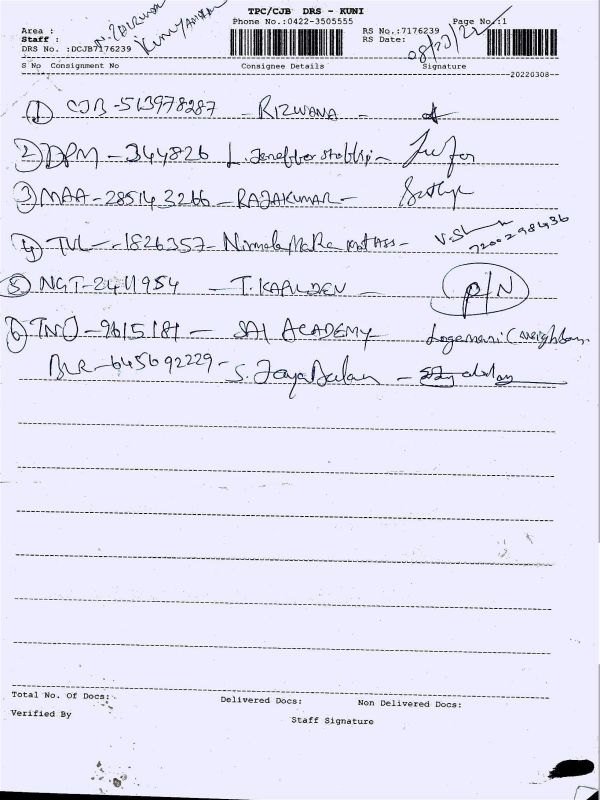 TPC/CJB DRS - KUNI
Phone No.:0422-3505555 Page No.:1
Area :
Staff :
DRS No. :DCJB7176239
RS No.:7176239
RS Date: 08/03/22
S No Consignment No Consignee Details Signature
20220308
① CJB-513978287 - RIZWANA -
② DPM - 344826 L.
③ MAA - 285143266 - RAJAKUMAR -
④ TVL - 1826357 - Nirmala - V.Sh 7200298436
⑤ NGT - 2411954 - T. KAPILDEV - P/N
⑥ TNJ - 9615181 - SAI ACADEMY Logamani (neighbour
BLR - 645692229 - S. Jayabalan -
Total No. Of Docs: Delivered Docs: Non Delivered Docs:
Verified By Staff Signature